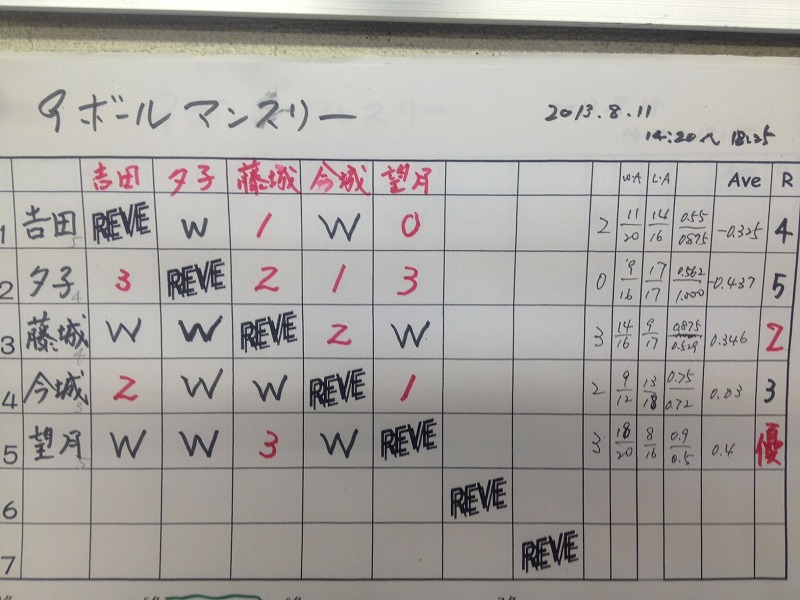 9ボール マンスリー 2013.8.11
14:20〜18:25
吉田 夕子 藤城 今城 望月 W.A L.A Ave R
1 吉田 5 REVE W 1 W 0 2 11/20 14/16 0.55/0.875 -0.325 4
2 夕子 4 3 REVE 2 1 3 0 9/16 17/17 0.562/1.000 -0.437 5
3 藤城 4 W W REVE 2 W 3 14/16 9/17 0.875/0.529 0.346 2
4 今城 3 2 W W REVE 1 2 9/12 13/18 0.75/0.72 0.03 3
5 望月 5 W W 3 W REVE 3 18/20 8/16 0.9/0.5 0.4 優
6 REVE
7 REVE